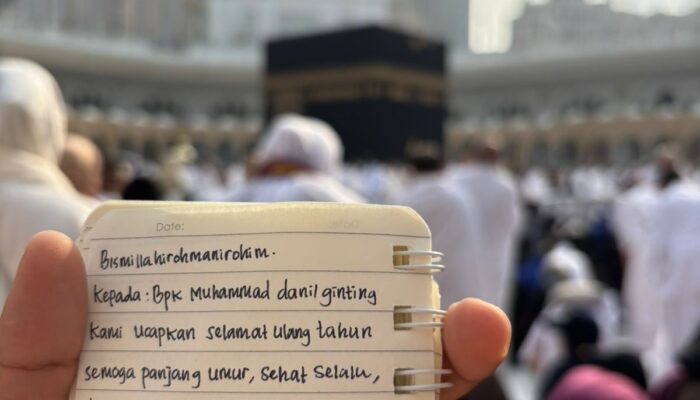 Date:
Bismillahirohmanirohim.
Kepada : Bpk Muhammad danil ginting
Kami ucapkan selamat ulang tahun
semoga panjang umur, sehat selalu,